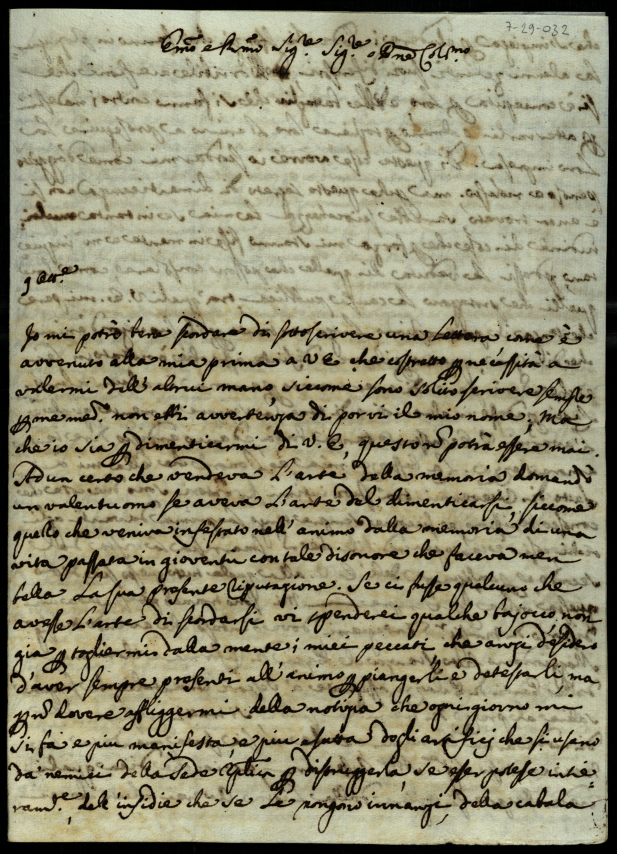 7-29-032
Emo e Rmo Sigre. Sigre. e Pne Colmo.
9 Otte.
Io mi potrò bene scordare di sottoscrivere una Lettera come è
avvenuto alla mia prima a V. E. che costretto p necessità a
valermi dell' altrui mano, siccome sono solito scrivere sempre
p me medo. non ebbi avvertenza di porvi il mio nome, Ma
che io sia p dimenticarmi di V. E, questo nō potrà essere mai.
Ad un certo che vendeva L'arte della memoria domandò
un valentuomo se aveva L'arte del dimenticarsi, siccome
quello che veniva infestato nell' animo dalla memoria di una
vita passata in gioventù con tale disonore che faceva men
bella La sua presente riputazione. Se ci fusse qualcuno che
avesse L'arte di scordarsi vi spenderei qualche bajocco, non
gia p togliermi dalla mente i miei peccati, che anzi desidero
d'aver sempre presenti all' animo p piangerli e detestarli, ma
p nō dovere affliggermi della notizia che ogni giorno mi
si fa e più manifesta, e più esatta degli artificj che si usano
da nemici della Sede Aplica p distruggerla, se esser potesse intie=
ramte., dell' insidie che se Le pongono innanzi, della cabala